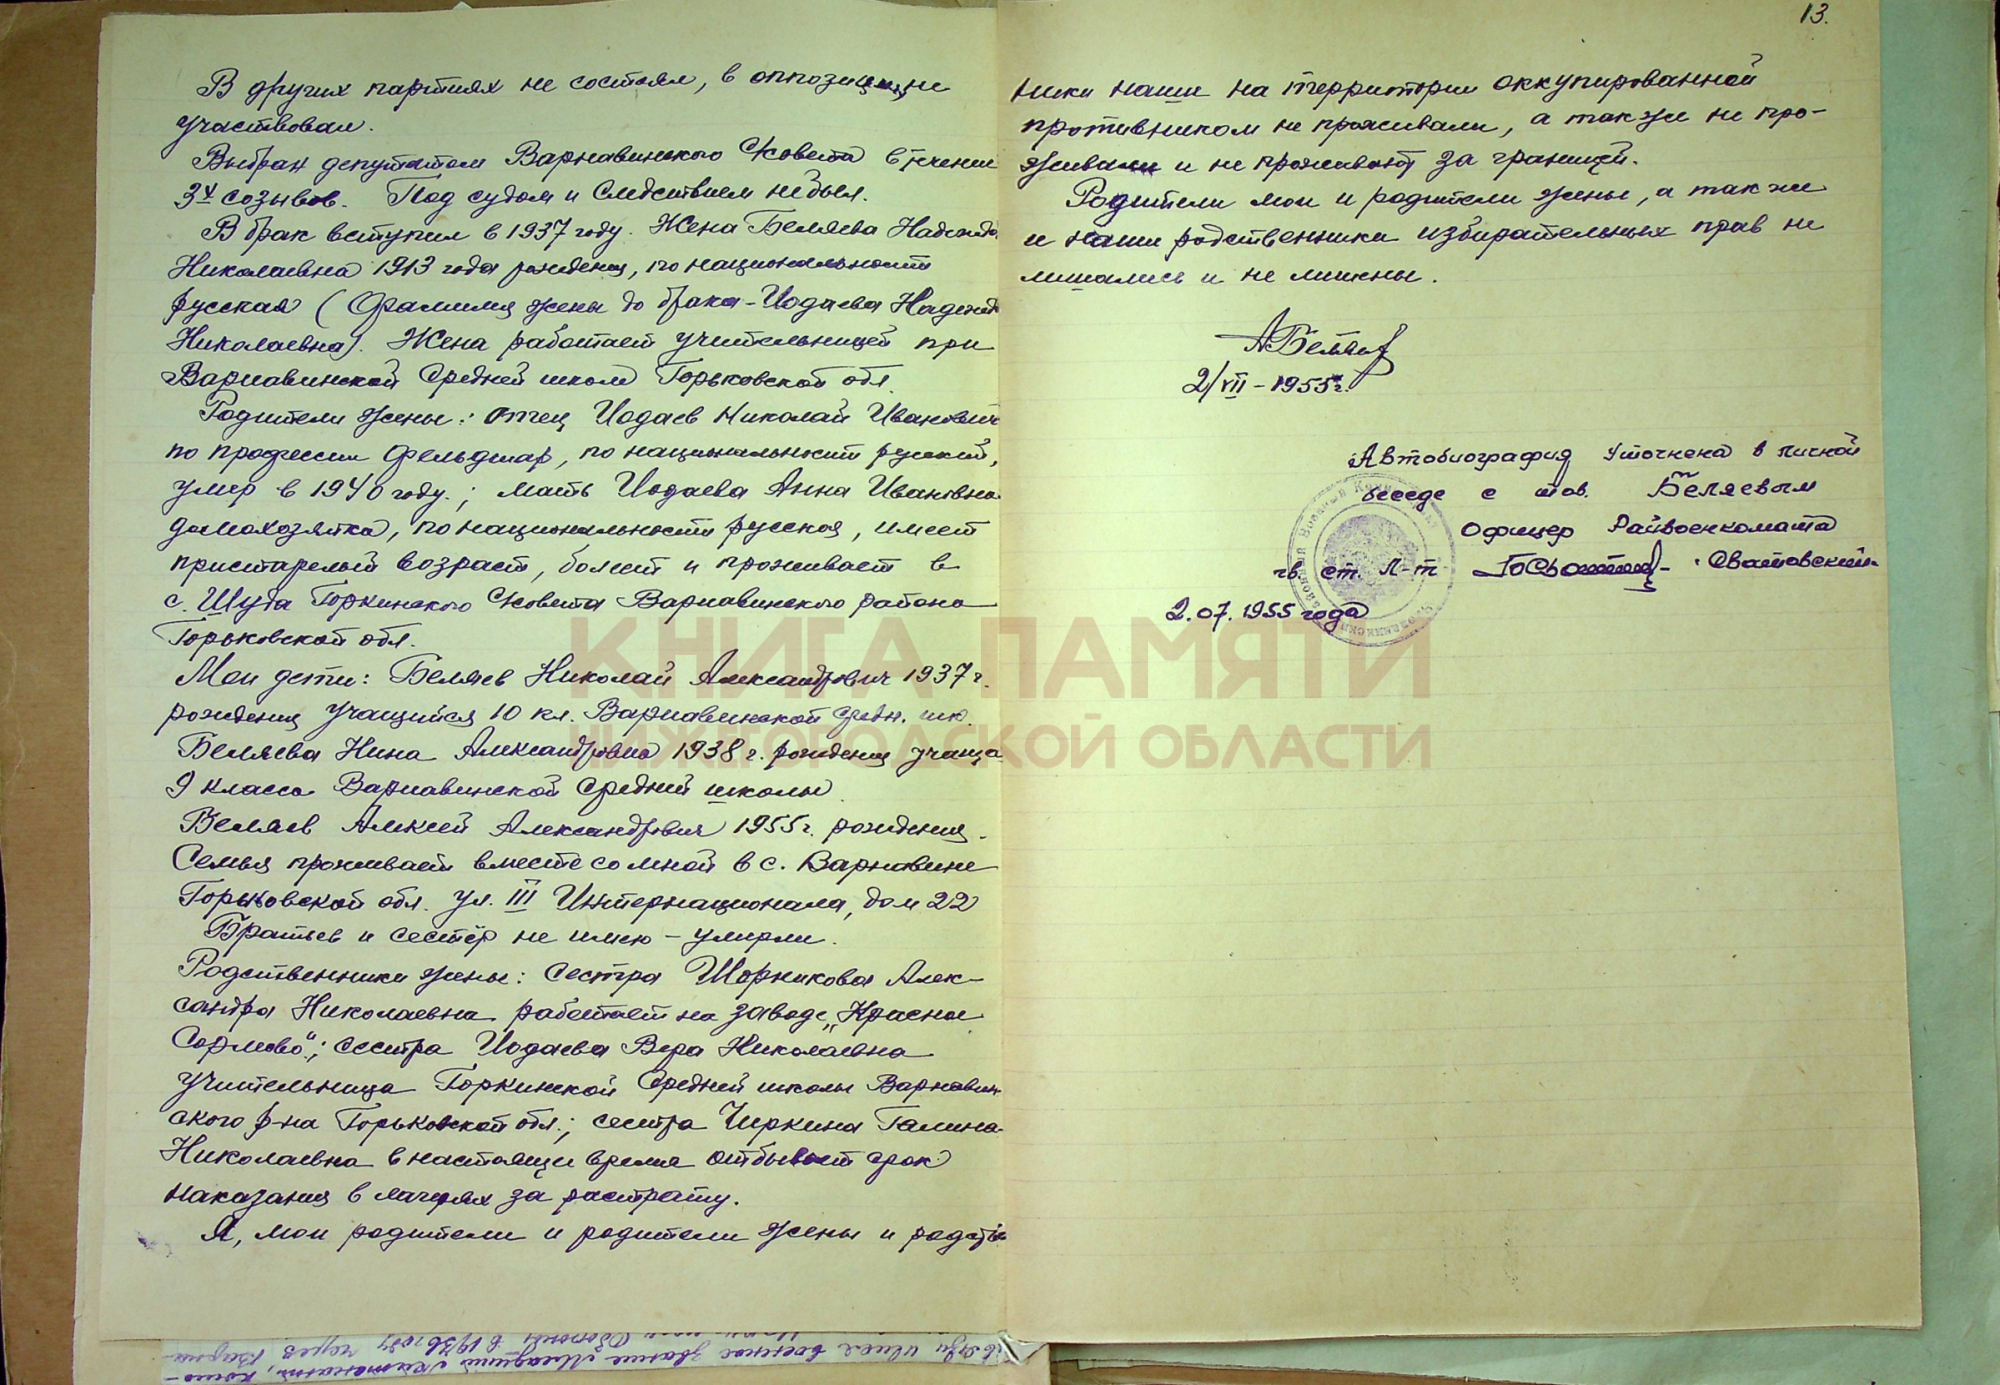 В других партиях не состоял, в оппозиции не
участвовал.
Выбран депутатом Варнавинского с/совета в течении
3х созывов. Под судом и следствием не был.
В брак вступил в 1937 году. Жена Беляева Надежда
Николаевна 1913 года рождения, по национальности
русская (фамилия жены до брака - Иодаева Надежда
Николаевна). Жена работает учительницей при
Варнавинской средней школе Горьковской обл.
Родители жены: отец Иодаев Николай Иванович
по профессии фельдшар, по национальности русский,
умер в 1940 году.; мать Иодаева Анна Ивановна
домохозяйка, по национальности русская, имеет
пристарелый возраст, болеет и проживает в
с. Шуда Горкинского с/совета Варнавинского района
Горьковской обл.
Мои дети: Беляев Николай Александрович 1937 г.
рождения учащийся 10 кл. Варнавинской средн. шк.
Беляева Нина Александровна 1938 г. рождения учаща
9 класса Варнавинской средней школы
Беляев Алексей Александрович 1955 г. рождения.
Семья проживает вместе со мной в с. Варнавине
Горьковской обл. ул. III Интернационала, дом 22
Братьев и сестёр не имею - умерли.
Родственники жены: сестра Шорникова Алек-
сандра Николаевна работает на заводе „Красное
Сормово"; сестра Иодаева Вера Николаевна
учительница Горкинской средней школы Варнавин-
ского р-на Горьковской обл.; сестра Чиркина Галина
Николаевна в настоящие время отбывает срок
наказания в лагерях за растрату.
Я, мои родители и родители жены и родствен
13.
ники наши на территории оккупированной
противником не проживали, а также не про-
живали и не проживают за границей.
Родители мои и родители жены, а также
и наши родственники избирательных прав не
лишались и не лишены.
АБеляев
2/VII - 1955 г.
Автобиография уточнена в личной
беседе с тов. Беляевым
Офицер Райвоенкомата
гв. ст. л-т Святовский
2.07.1955 года
КНИГА ПАМЯТИ
НИЖЕГОРОДСКОЙ ОБЛАСТИ